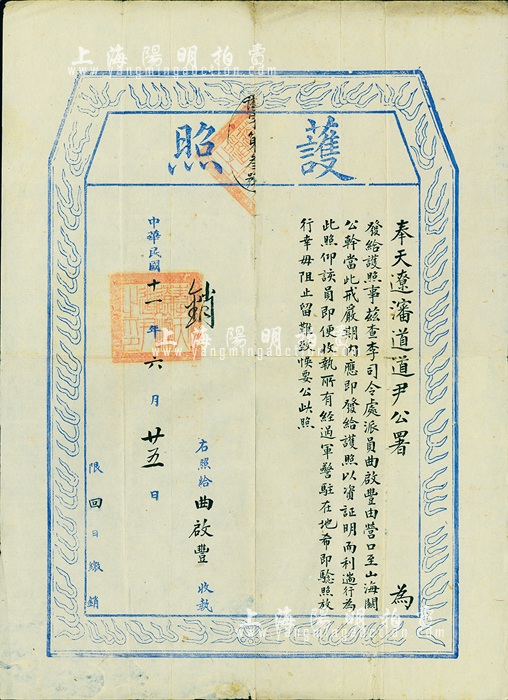 上海陽明拍賣
www.yangmingauction.com
護照
奉天遼瀋道道尹公署 為
發給護照事茲查李司令處派員曲啟豐由營口至山海關
公幹當此戒嚴期內應即發給護照以資証明而利遄行為
此照仰該員即便收執所有經過軍警駐在地希即驗照放
行幸毋阻止留難致悮要公此照
右照給曲啟豐收執
銷
中華民國十一年六月廿五日
限回日繳銷
上海陽明拍賣
www.yangmingauction.com
上海陽明拍賣
www.yangmingauction.com